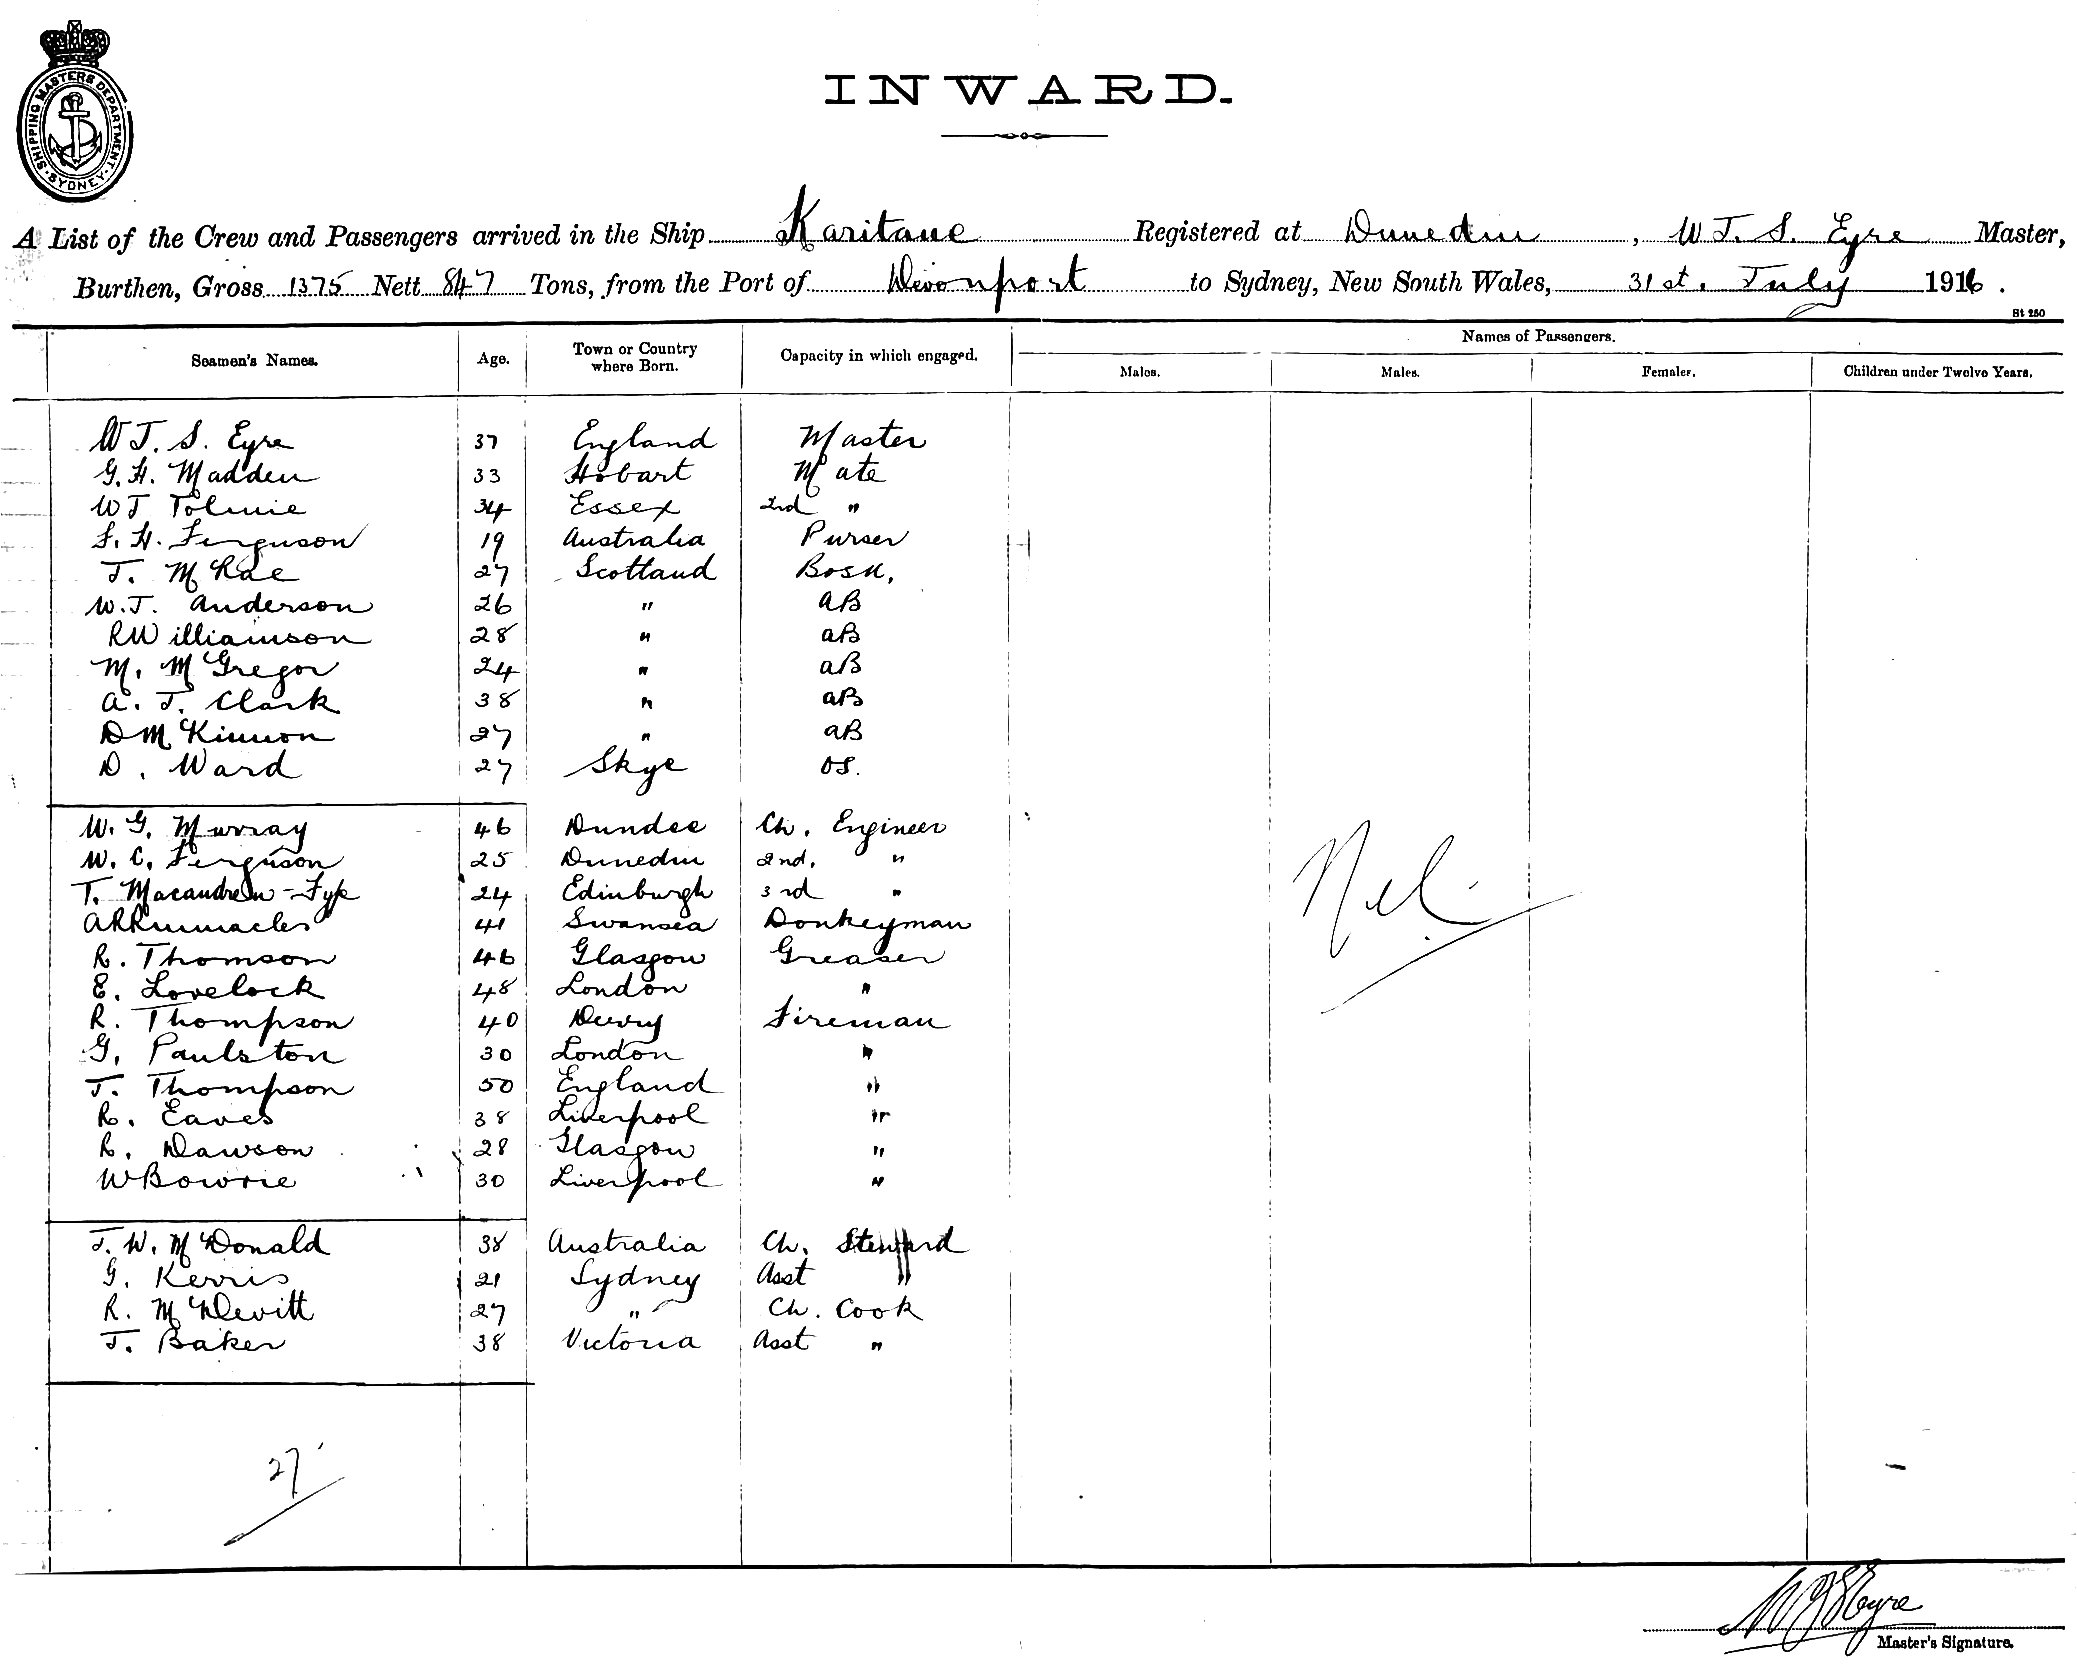 SHIPPING MASTERS DEPARTMENT
SYDNEY
INWARD.
A List of the Crew and Passengers arrived in the Ship Karitane Registered at Dunedin, W T. S. Eyre Master,
Burthen, Gross 1375 Nett 847 Tons, from the Port of Devonport to Sydney, New South Wales, 31st. July 1916.
St 250
Seamen's Names. Age. Town or Country where Born. Capacity in which engaged. Names of Passengers.
Males. Males. Females. Children under Twelve Years.
W T. S. Eyre 37 England Master
G. H. Madden 33 Hobart Mate
W T Tolmie 34 Essex 2nd "
F. H. Ferguson 19 Australia Purser
J. McRae 27 Scotland Bosn.
W. J. Anderson 26 " AB
R Williamson 28 " AB
M. McGregor 24 " AB
A. J. Clark 38 " AB
D McKinnon 27 " AB
D. Ward 27 Skye OS.
W. G. Murray 46 Dundee Ch. Engineer
W. C. Ferguson 25 Dunedin 2nd. "
T. Macandrew-Fyfe 24 Edinburgh 3rd "
41 Swansea Donkeyman
R. Thomson 46 Glasgow Greaser
E. Lovelock 48 London "
R. Thompson 40 Derry Fireman
G. Paulston 30 London "
J. Thompson 50 England "
R. Eaves 38 Liverpool "
R. Dawson 28 Glasgow "
W Bowrie 30 Liverpool "
J. W. McDonald 38 Australia Ch. Steward
G. Kerris 21 Sydney Asst "
R. McDevitt 27 " Ch. Cook
J. Baker 38 Victoria Asst "
Nil
27
W T S Eyre
Master's Signature.